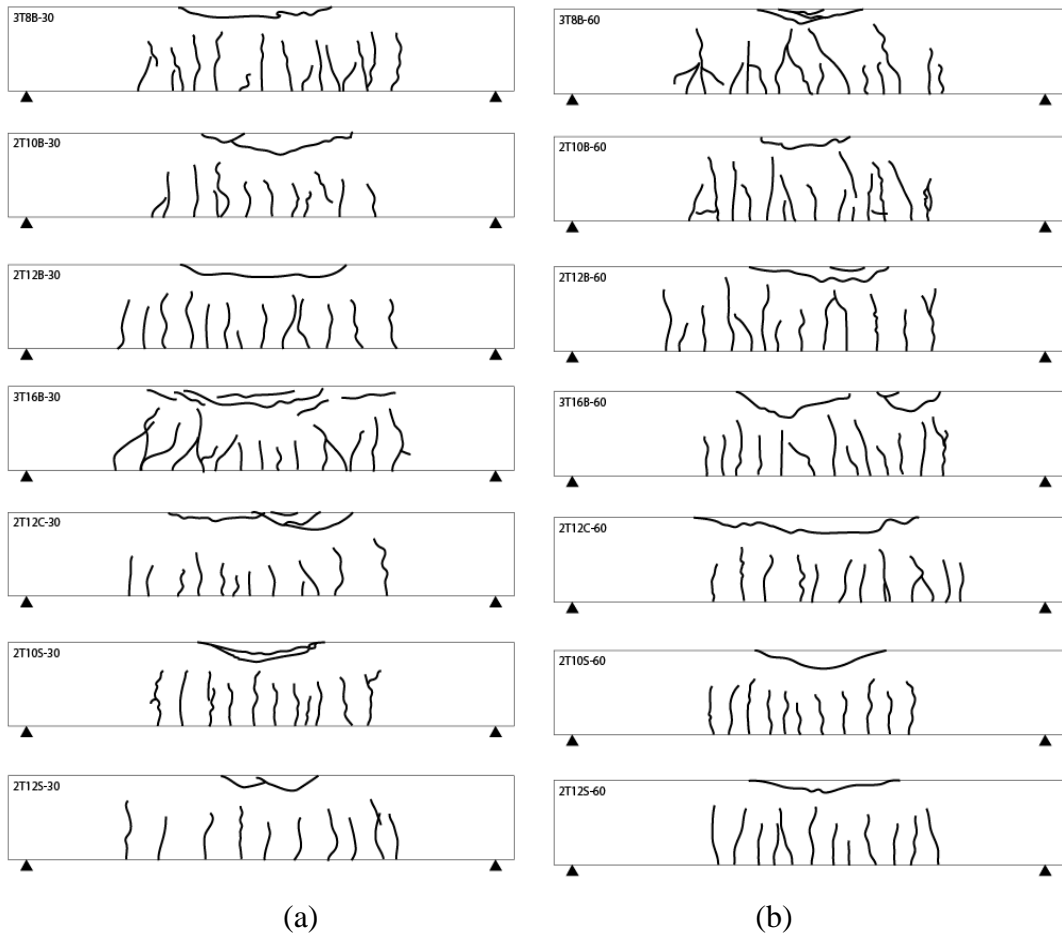 3T8B-30
2T10B-30
2T12B-30
3T16B-30
2T12C-30
2T10S-30
2T12S-30
(a)
3T8B-60
2T10B-60
2T12B-60
3T16B-60
2T12C-60
2T10S-60
2T12S-60
(b)